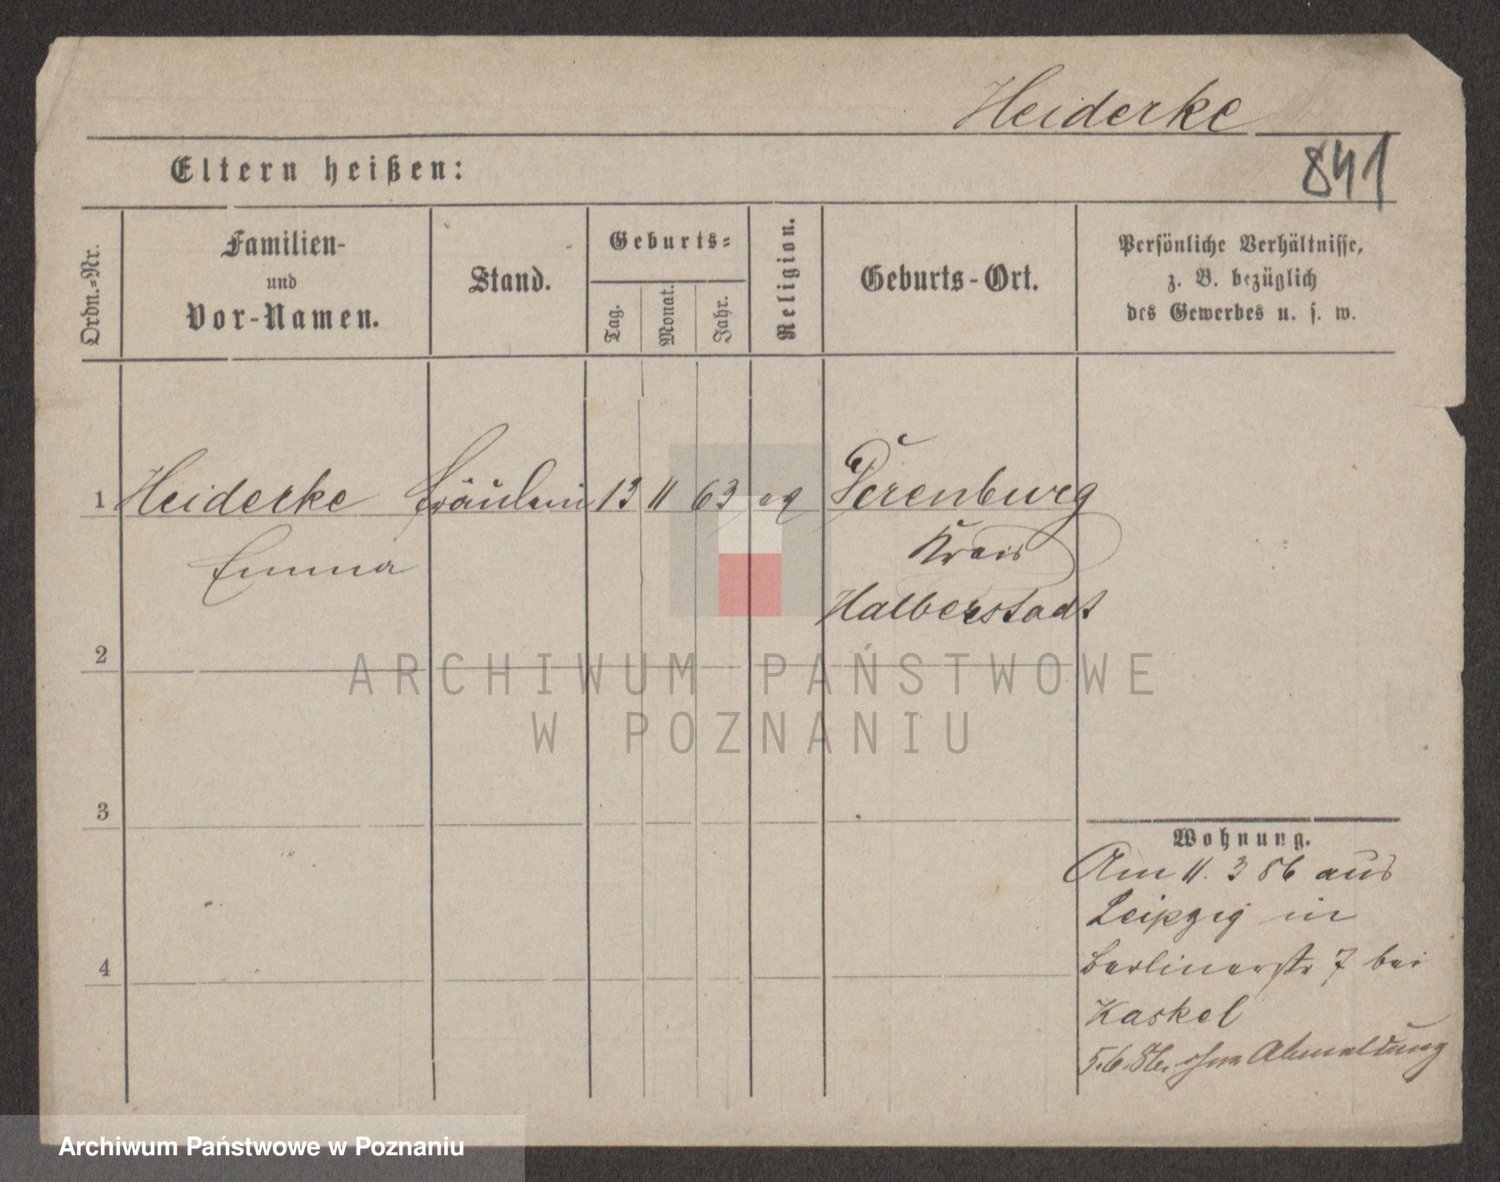 Heiderke
Eltern heißen:
841
Ordn.=Nr.
Familien-
und
Vor-Namen.
Stand.
Geburts=
Tag.
Monat.
Jahr.
Religion.
Geburts-Ort.
Persönliche Verhältnisse,
z. B. bezüglich
des Gewerbes u. s. w.
1 Heiderke Fräulein 13 11 63 ev Derenburg
Emma Kreis
Halberstadt
2
ARCHIWUM PAŃSTWOWE
W POZNANIU
3
Wohnung.
Am 11. 3 86 aus
Leipzig in
4
Berlinerstr 7 bei
Kaskel
5.6.86. ohne Abmeldung
Archiwum Państwowe w Poznaniu